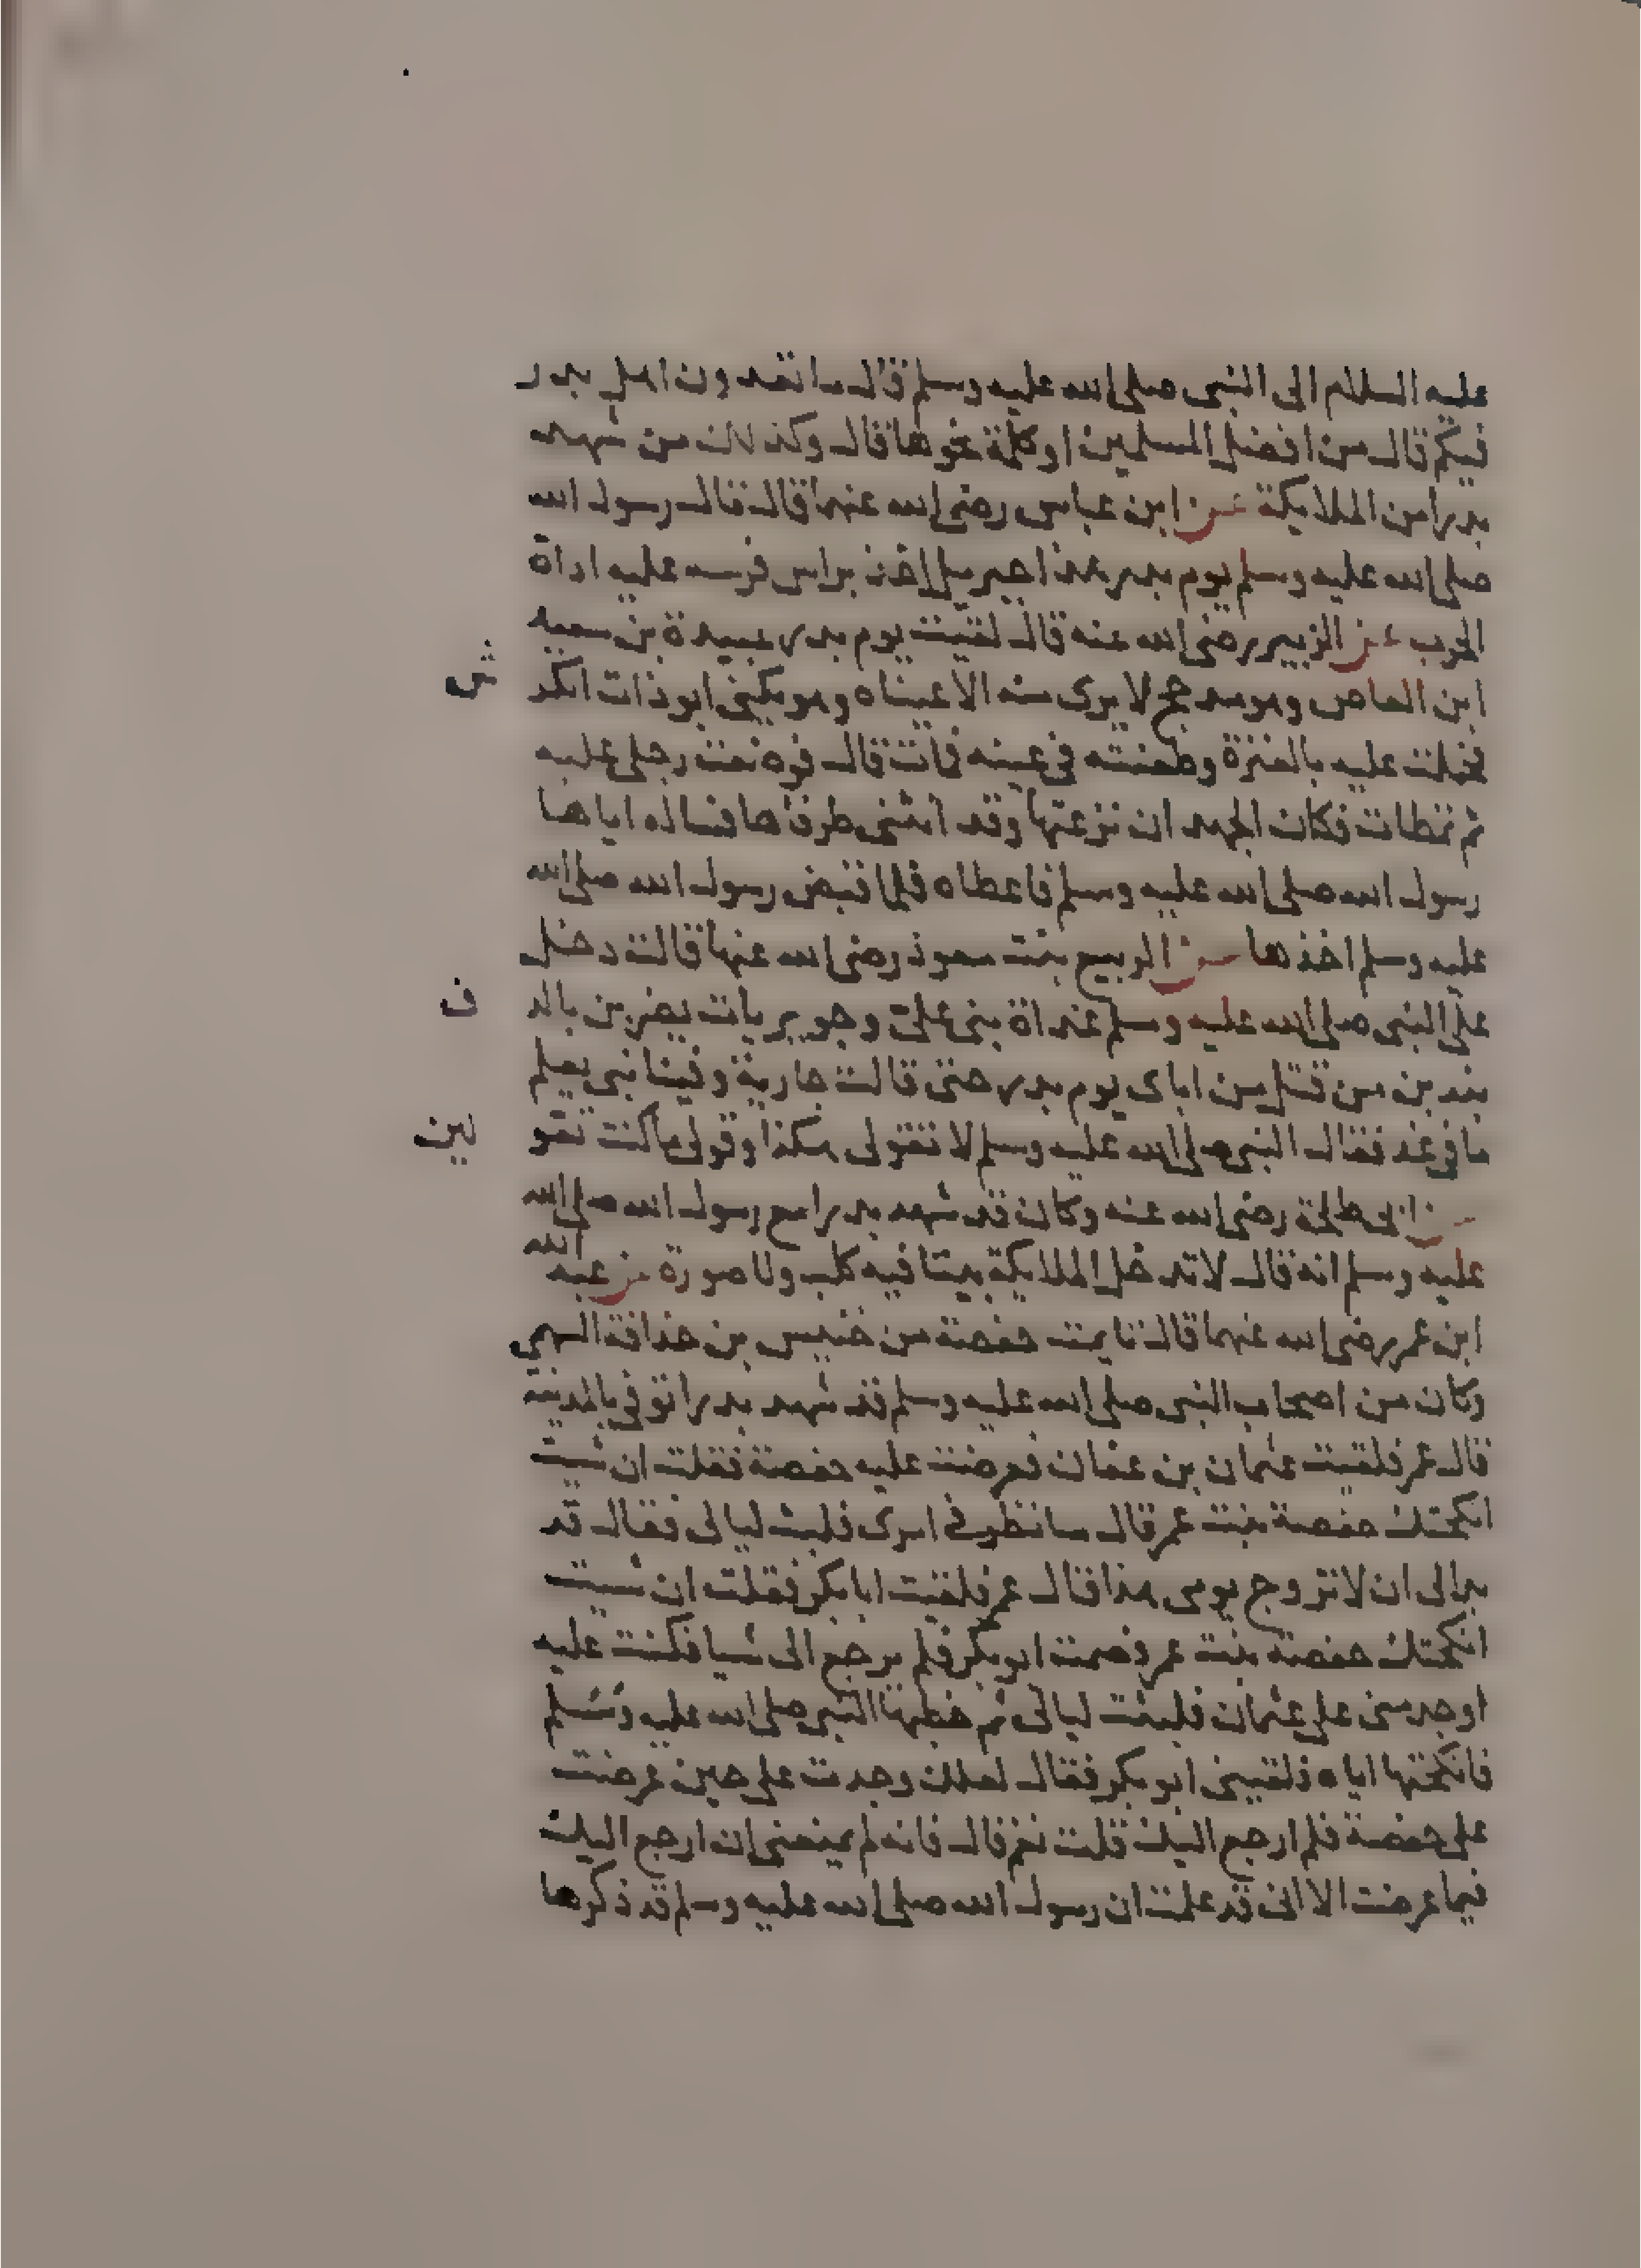 عليه السلام الى النبى صلى الله عليه وسلم قال ما تعدون اهل بدر
فيكم قال من افضل المسلمين او كلمة نحوها قال وكذلك من شهد
بدرا من الملايكة عن ابن عباس رضى الله عنهما قال قال رسول الله
صلى الله عليه وسلم يوم بدر هذا جبريل اخذ براس فرسه عليه اداة
الحرب عن الزبير رضى الله عنه قال لقيت يوم بدر عبيدة بن سعيد
ابن العاص وهو مدجج لا يرى منه الا عيناه وهو يكنى ابو ذات الكر
ش
فحملت عليه بالعنزة وطعنته فى عينه فمات قال فوضعت رجلى عليه
ثم تمطات فكان الجهد ان نزعتها وقد انثنى طرفاها فساله اياها
رسول الله صلى الله عليه وسلم فاعطاه فلما قبض رسول الله صلى الله
عليه وسلم اخذها عن الربيع بنت معوذ رضى الله عنها قالت دخل
على النبى صلى الله عليه وسلم غداة بنى على وجويريات يضربن بالد
ف
يندبن من قتل من اباى يوم بدر حتى قالت جارية وفينا نبى يعلم
ما فى غد فقال النبى صلى الله عليه وسلم لا تقولى هكذا وقولى ما كنت تقو
لين
عن ابى طلحة رضى الله عنه وكان قد شهد بدرا مع رسول الله صلى الله
عليه وسلم انه قال لا تدخل الملايكة بيتا فيه كلب ولا صورة عن عبد الله
ابن عمر رضى الله عنهما قال تايمت حفصة من خنيس بن حذافة السهمى
وكان من اصحاب النبى صلى الله عليه وسلم قد شهد بدرا توفى بالمدينة
قال عمر فلقيت عثمان بن عفان فعرضت عليه حفصة فقلت ان شيت
انكحتك حفصة بنت عمر قال سانظر فى امرى فلبثت ليالى فقال قد
بدا لى ان لا تزوج يومى هذا قال عمر فلقيت ابا بكر فقلت ان شيت
انكحتك حفصة بنت عمر فصمت ابو بكر فلم يرجع الى شيا فكنت عليه
اوجد منى على عثمان فلبثت ليالى ثم خطبها النبى صلى الله عليه وسلم
فانكحتها اياه فلقينى ابو بكر فقال لعلك وجدت على حين عرضت
على حفصة فلم ارجع اليك قلت نعم قال فانه لم يمنعنى ان ارجع اليك
فيما عرضت الا انى قد علمت ان رسول الله صلى الله عليه وسلم قد ذكرها